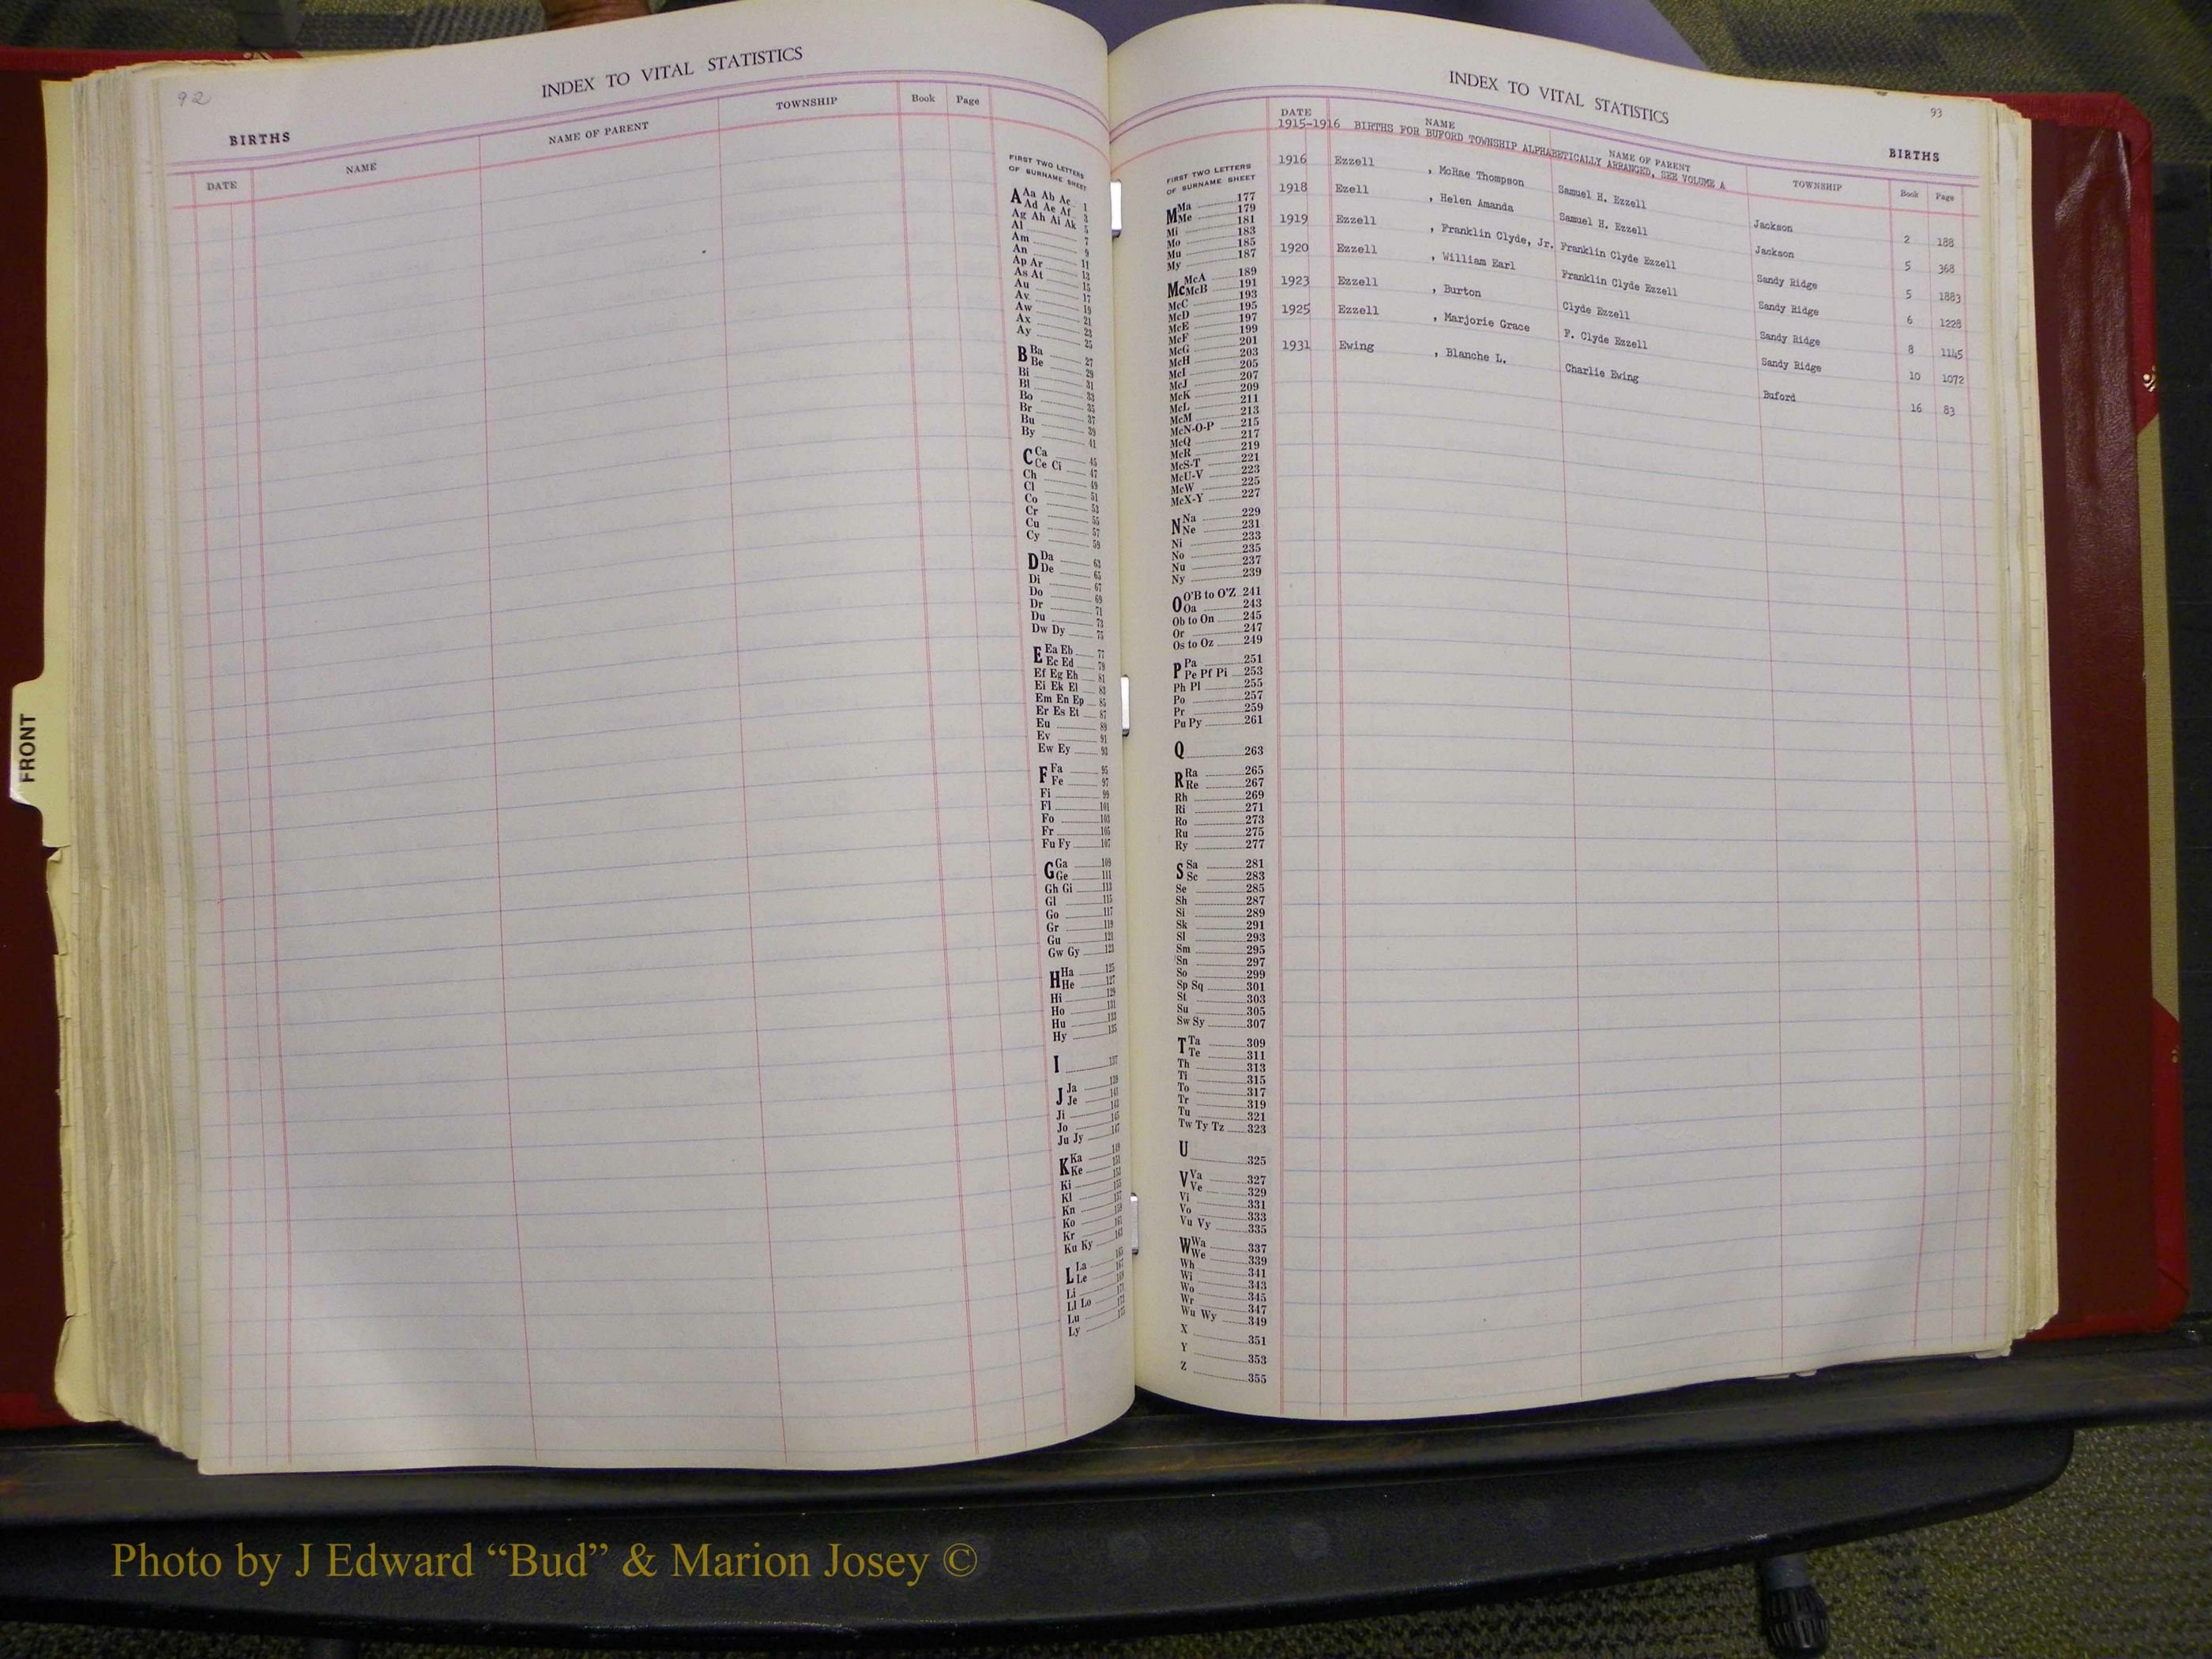 92
INDEX TO VITAL STATISTICS
BIRTHS
DATE NAME NAME OF PARENT TOWNSHIP Book Page
FIRST TWO LETTERS
OF SURNAME SHEET
A Aa Ab Ac 1
Ad Ae Af 3
Ag Ah Ai Ak 5
Al 7
Am 9
An 11
Ap Ar 13
As At 15
Au 17
Av 19
Aw 21
Ax 23
Ay 25
B Ba 27
Be 29
Bi 31
Bl 33
Bo 35
Br 37
Bu 39
By 41
C Ca 45
Ce Ci 47
Ch 49
Cl 51
Co 53
Cr 55
Cu 57
Cy 59
D Da 63
De 65
Di 67
Do 69
Dr 71
Du 73
Dw Dy 75
E Ea Eb 77
Ec Ed 79
Ef Eg Eh 81
Ei Ek El 83
Em En Ep 85
Er Es Et 87
Eu 89
Ev 91
Ew Ey 93
F Fa 95
Fe 97
Fi 99
Fl 101
Fo 103
Fr 105
Fu Fy 107
G Ga 109
Ge 111
Gh Gi 113
Gl 115
Go 117
Gr 119
Gu 121
Gw Gy 123
H Ha 125
He 127
Hi 129
Ho 131
Hu 133
Hy 135
I 137
J Ja 139
Je 141
Ji 143
Jo 145
Ju Jy 147
K Ka 149
Ke 151
Ki 153
Kl
Kn
Ko
Kr
Ku Ky
L La
Le
Li
Ll Lo
Lu
Ly
INDEX TO VITAL STATISTICS
93
BIRTHS
DATE NAME NAME OF PARENT TOWNSHIP Book Page
1915-1916 BIRTHS FOR BUFORD TOWNSHIP ALPHABETICALLY ARRANGED, SEE VOLUME A
1916 Ezzell , McRae Thompson Samuel H. Ezzell Jackson 2 188
1918 Ezell , Helen Amanda Samuel H. Ezzell Jackson 5 368
1919 Ezzell , Franklin Clyde, Jr. Franklin Clyde Ezzell Sandy Ridge 5 1883
1920 Ezzell , William Earl Franklin Clyde Ezzell Sandy Ridge 6 1228
1923 Ezzell , Burton Clyde Ezzell Sandy Ridge 8 1145
1925 Ezzell , Marjorie Grace F. Clyde Ezzell Sandy Ridge 10 1072
1931 Ewing , Blanche L. Charlie Ewing Buford 16 83
FIRST TWO LETTERS
OF SURNAME SHEET
M Ma 177
Me 179
Mi 181
Mo 183
Mu 185
My 187
Mc McA 189
McB 191
McC 193
McD 195
McE 197
McF 199
McG 201
McH 203
McI 205
McJ 207
McK 209
McL 211
McM 213
McN-O-P 215
McQ 217
McR 219
McS-T 221
McU-V 223
McW 225
McX-Y 227
N Na 229
Ne 231
Ni 233
No 235
Nu 237
Ny 239
O O'B to O'Z 241
Oa 243
Ob to On 245
Or 247
Os to Oz 249
P Pa 251
Pe Pf Pi 253
Ph Pl 255
Po 257
Pr 259
Pu Py 261
Q 263
R Ra 265
Re 267
Rh 269
Ri 271
Ro 273
Ru 275
Ry 277
S Sa 281
Sc 283
Se 285
Sh 287
Si 289
Sk 291
Sl 293
Sm 295
Sn 297
So 299
Sp Sq 301
St 303
Su 305
Sw Sy 307
T Ta 309
Te 311
Th 313
Ti 315
To 317
Tr 319
Tu 321
Tw Ty Tz 323
U 325
V Va 327
Ve 329
Vi 331
Vo 333
Vu Vy 335
W Wa 337
We 339
Wh 341
Wi 343
Wo 345
Wr 347
Wu Wy 349
X 351
Y 353
Z 355
FRONT
Photo by J Edward “Bud” & Marion Josey ©